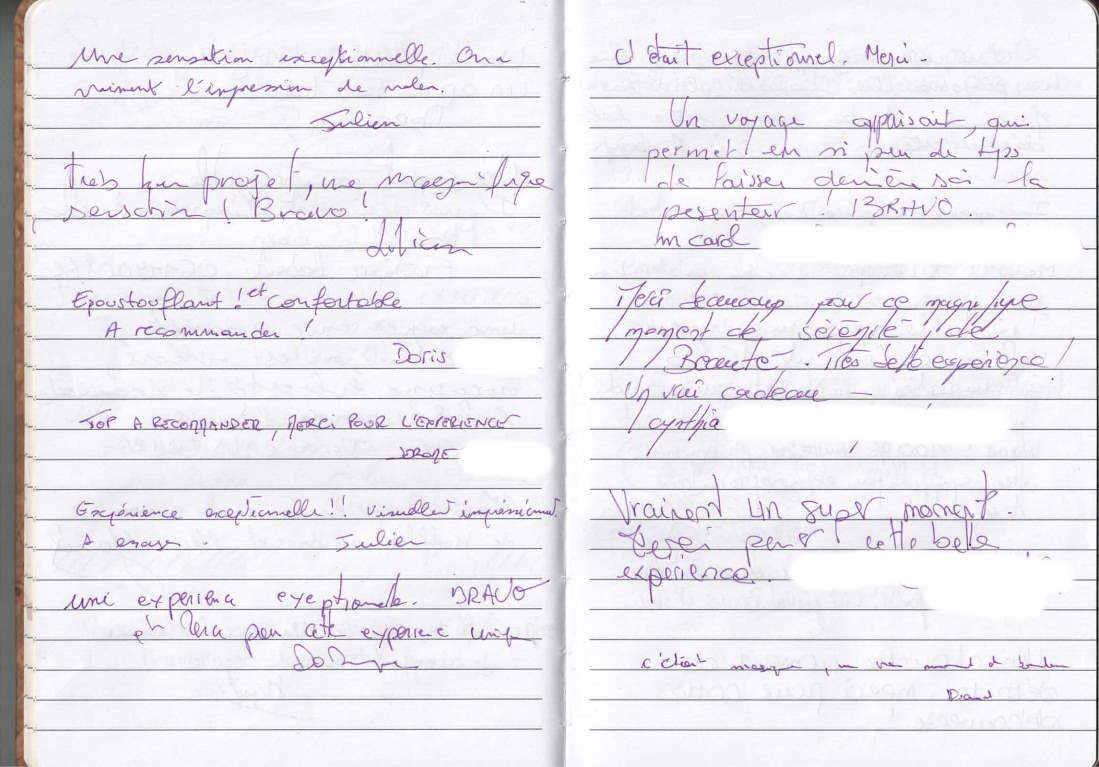 Une sensation exceptionnelle. On a
vraiment l'impression de voler.
Julien
Très beau projet, une magnifique
sensation ! Bravo !
Epoustouflant ! et Confortable
A recommander !
Doris
TOP A RECOMMANDER, MERCI POUR L'EXPERIENCE
Expérience exceptionnelle !! visuellet impressionnant
A essayer.
Julien
une experience exeptionnelle. BRAVO
et Merci pour cette experience unique
C'était exceptionnel. Merci.
Un voyage appaisant, qui
permet en si peu de tps
de laisser derrière soi la
pesenteur ! BRAVO.
carol
Merci beaucoup pour ce magnifique
moment de sérénité, de
Beauté. Très belle expérience !
Un vrai cadeau —
Cynthia
Vraiment un super moment.
Merci pour cette belle
expérience.
c'était magique, un vrai moment de bonheur